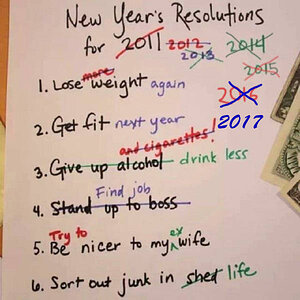 New Year's Resolutions
for 2011 2012 2013 2014 2015 2016 2017
1. Lose more weight again
2. Get fit next year
3. Give up alcohol and cigarettes! drink less
4. Stand up to boss Find job
5. Try to Be nicer to my ex wife
6. Sort out junk in shed life